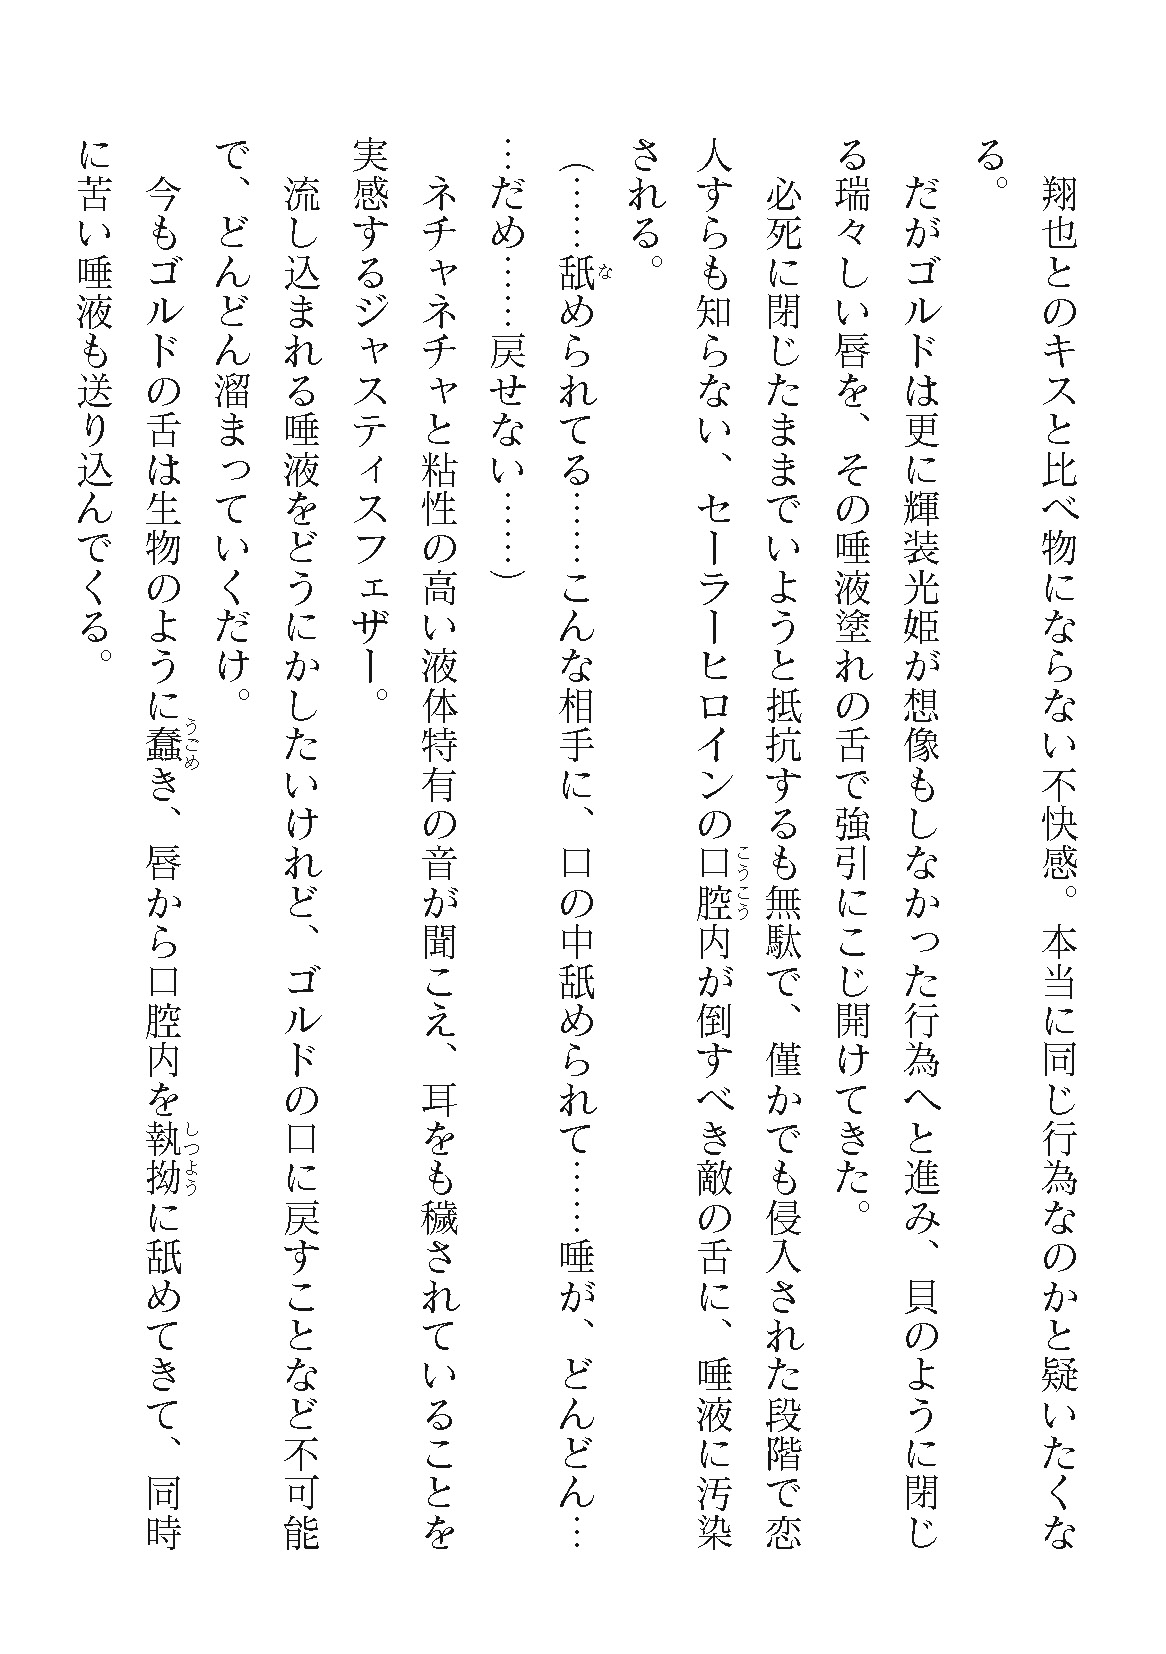 翔也とのキスと比べ物にならない不快感。本当に同じ行為なのかと疑いたくな
る。
だがゴルドは更に輝装光姫が想像もしなかった行為へと進み、貝のように閉じ
る瑞々しい唇を、その唾液塗れの舌で強引にこじ開けてきた。
必死に閉じたままでいようと抵抗するも無駄で、僅かでも侵入された段階で恋
人すらも知らない、セーラーヒロインの口腔内が倒すべき敵の舌に、唾液に汚染
される。
(……舐められてる……こんな相手に、口の中舐められて……唾が、どんどん…
…だめ……戻せない……)
ネチャネチャと粘性の高い液体特有の音が聞こえ、耳をも穢されていることを
実感するジャスティスフェザー。
流し込まれる唾液をどうにかしたいけれど、ゴルドの口に戻すことなど不可能
で、どんどん溜まっていくだけ。
今もゴルドの舌は生物のように蠢き、唇から口腔内を執拗に舐めてきて、同時
に苦い唾液も送り込んでくる。